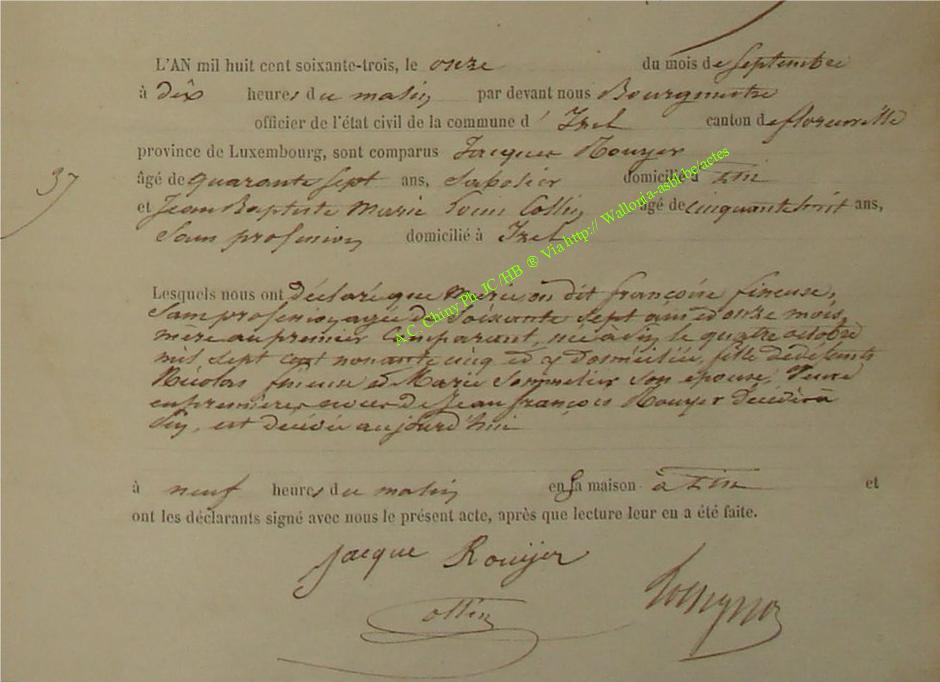 L'AN mil huit cent soixante-trois, le onze du mois de Septembre
à dix heures du matin par devant nous Bourgmestre
officier de l'état civil de la commune d' Izel canton de florenville
province de Luxembourg, sont comparus Jacques Rouyer
37
âgé de quarante sept ans, Sabotier domicilié à
et Jean Baptiste Marie Collin âgé de cinquante huit ans,
Sans profession domicilié à Izel
A.C. Chiny Ph. JC /HB ® Via http:// Wallonia-asbl.be/actes
Lesquels nous ont déclaré que dit françoise fineuse,
Sans profession, agée de Soixante Sept ans et onze mois,
mère au premier Comparant, née à le quatre octobre
mil sept cent nonante cinq et y domiciliée, fille de défunts
Nicolas fineuse et Marie son epouse, Veuve
en premières noces de Jean françois Rouyer décédé à
est décédée aujourd'hui
à neuf heures du matin en sa maison à et
ont les déclarants signé avec nous le présent acte, après que lecture leur en a été faite.
Jacque Rouyer
Collin